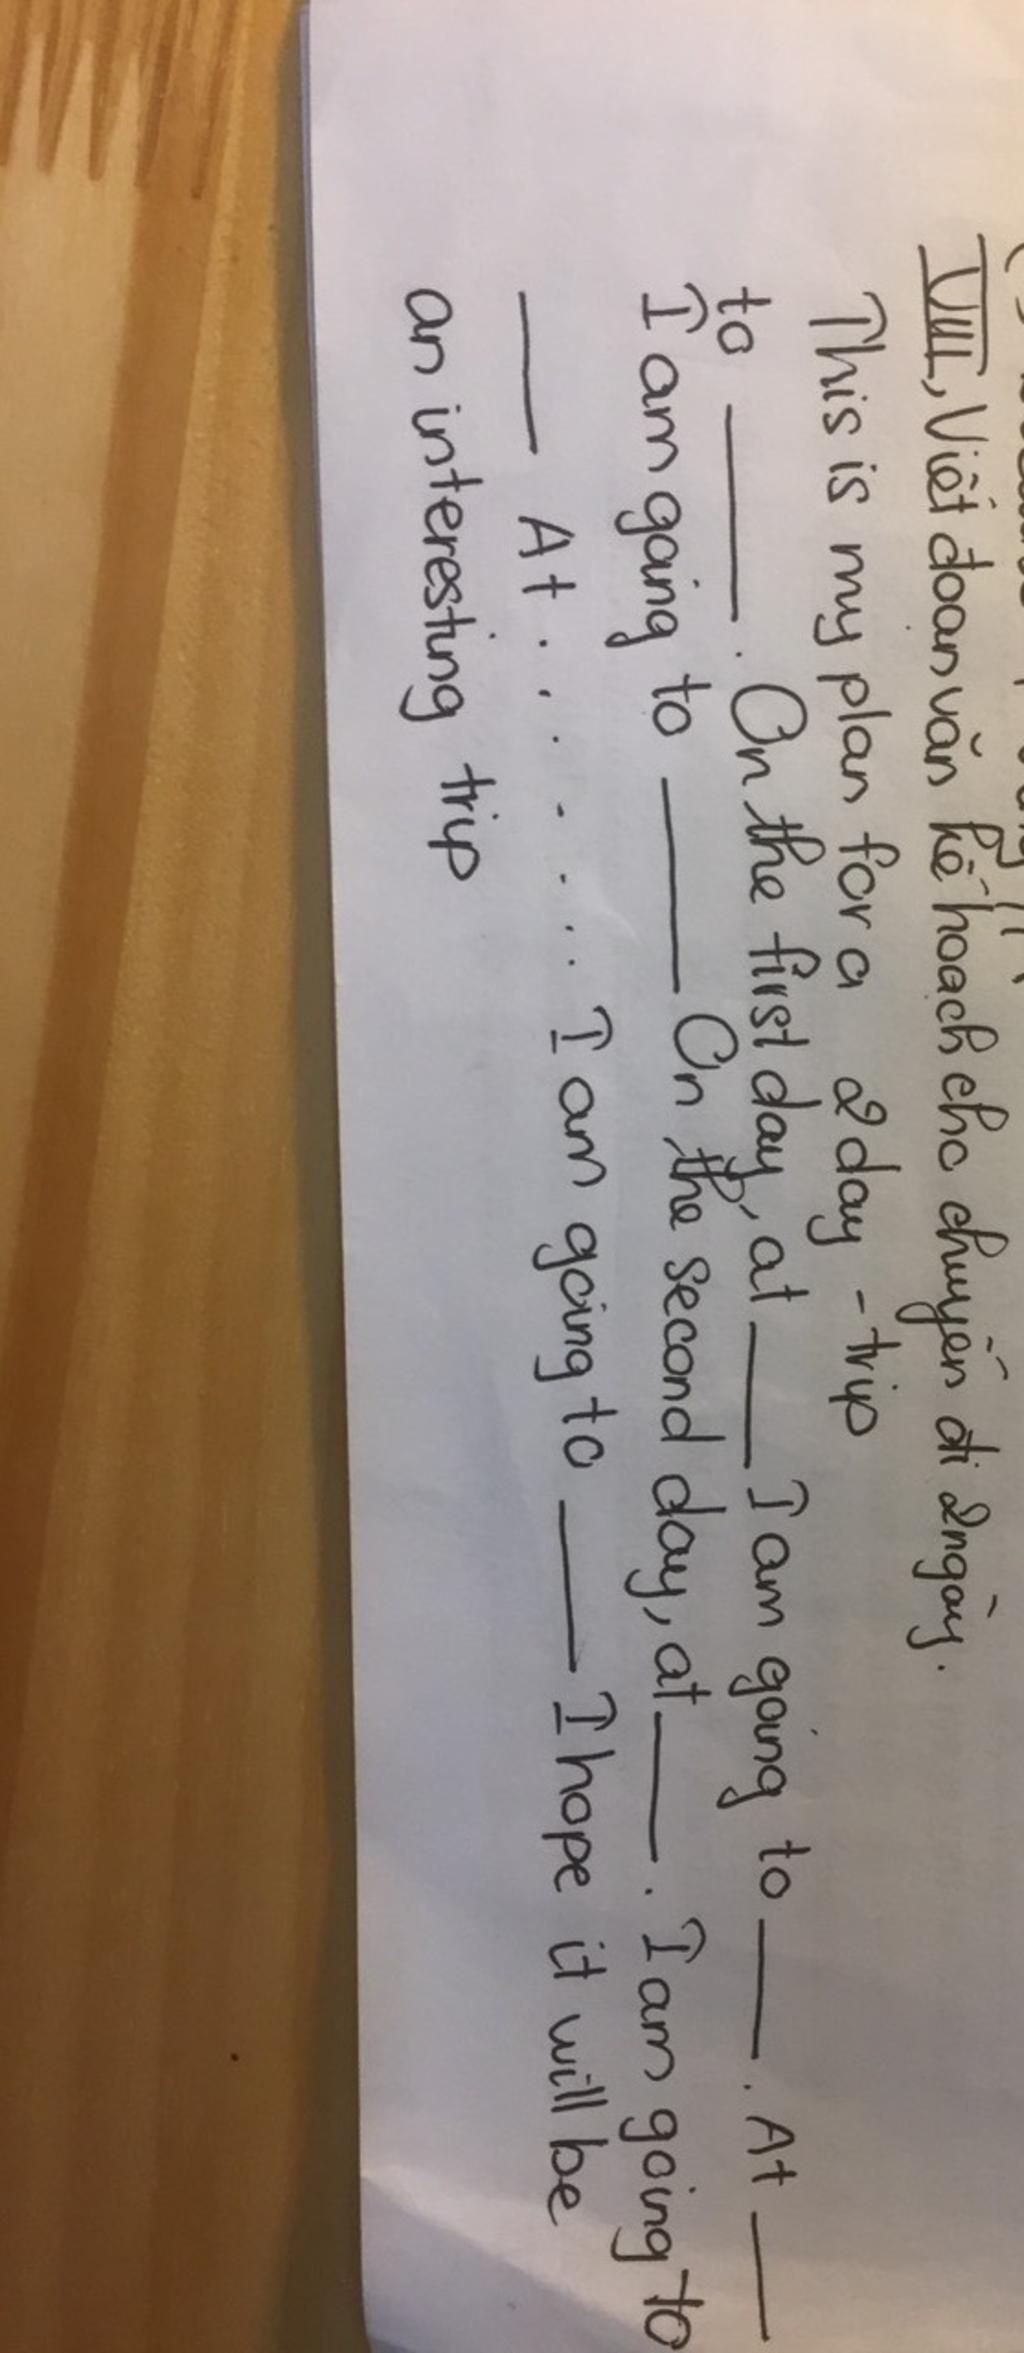 VIII, Viết đoạn văn kế hoạch cho chuyến đi 2 ngày.
This is my plan for a 2 day - trip
to ______. On the first day, at ____ I am going to ____. At ____
I am going to ______ On the second day, at ____. I am going to
____ At . . . . . . . I am going to ____ I hope it will be
an interesting trip